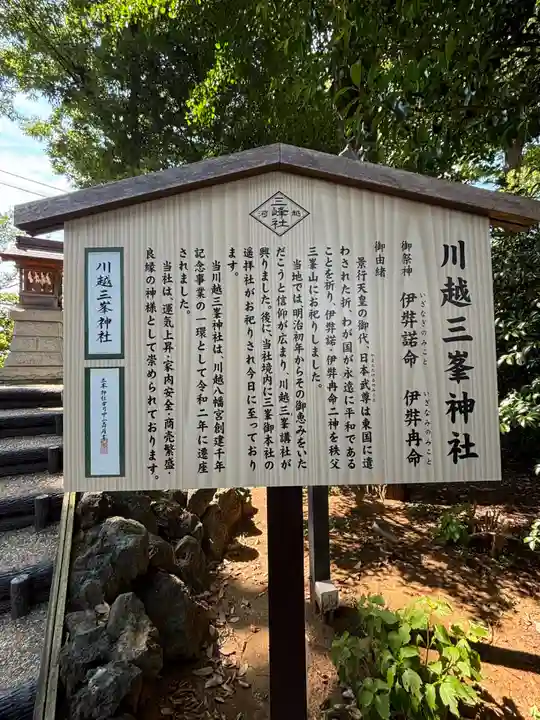 三峰社
河越
川越三峯神社
御祭神 伊弉諾命 伊弉冉命
いざなぎのみこと いざなみのみこと
御由緒
景行天皇の御代、日本武尊は東国に遣
わされた折、わが国が永遠に平和である
ことを祈り、伊弉諾 伊弉冉命二神を秩父
三峯山にお祀りしました。
当地では明治初年からその御恵みをいた
だこうと信仰が広まり、川越三峯講社が
興りました。後に、当社境内に三峯御本社の
遥拝社がお祀りされ今日に至っており
ます。
当川越三峯神社は、川越八幡宮創建千年
記念事業の一環として令和二年に遷座
されました。
当社は、運気上昇・家内安全・商売繁盛・
良縁の神様として崇められております。
川越三峯神社